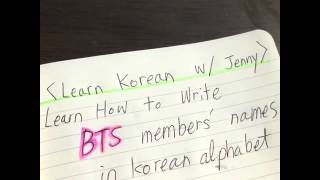 <Learn Korean w/ Jenny>
Learn How to Write
BTS members' names
in korean alphabet